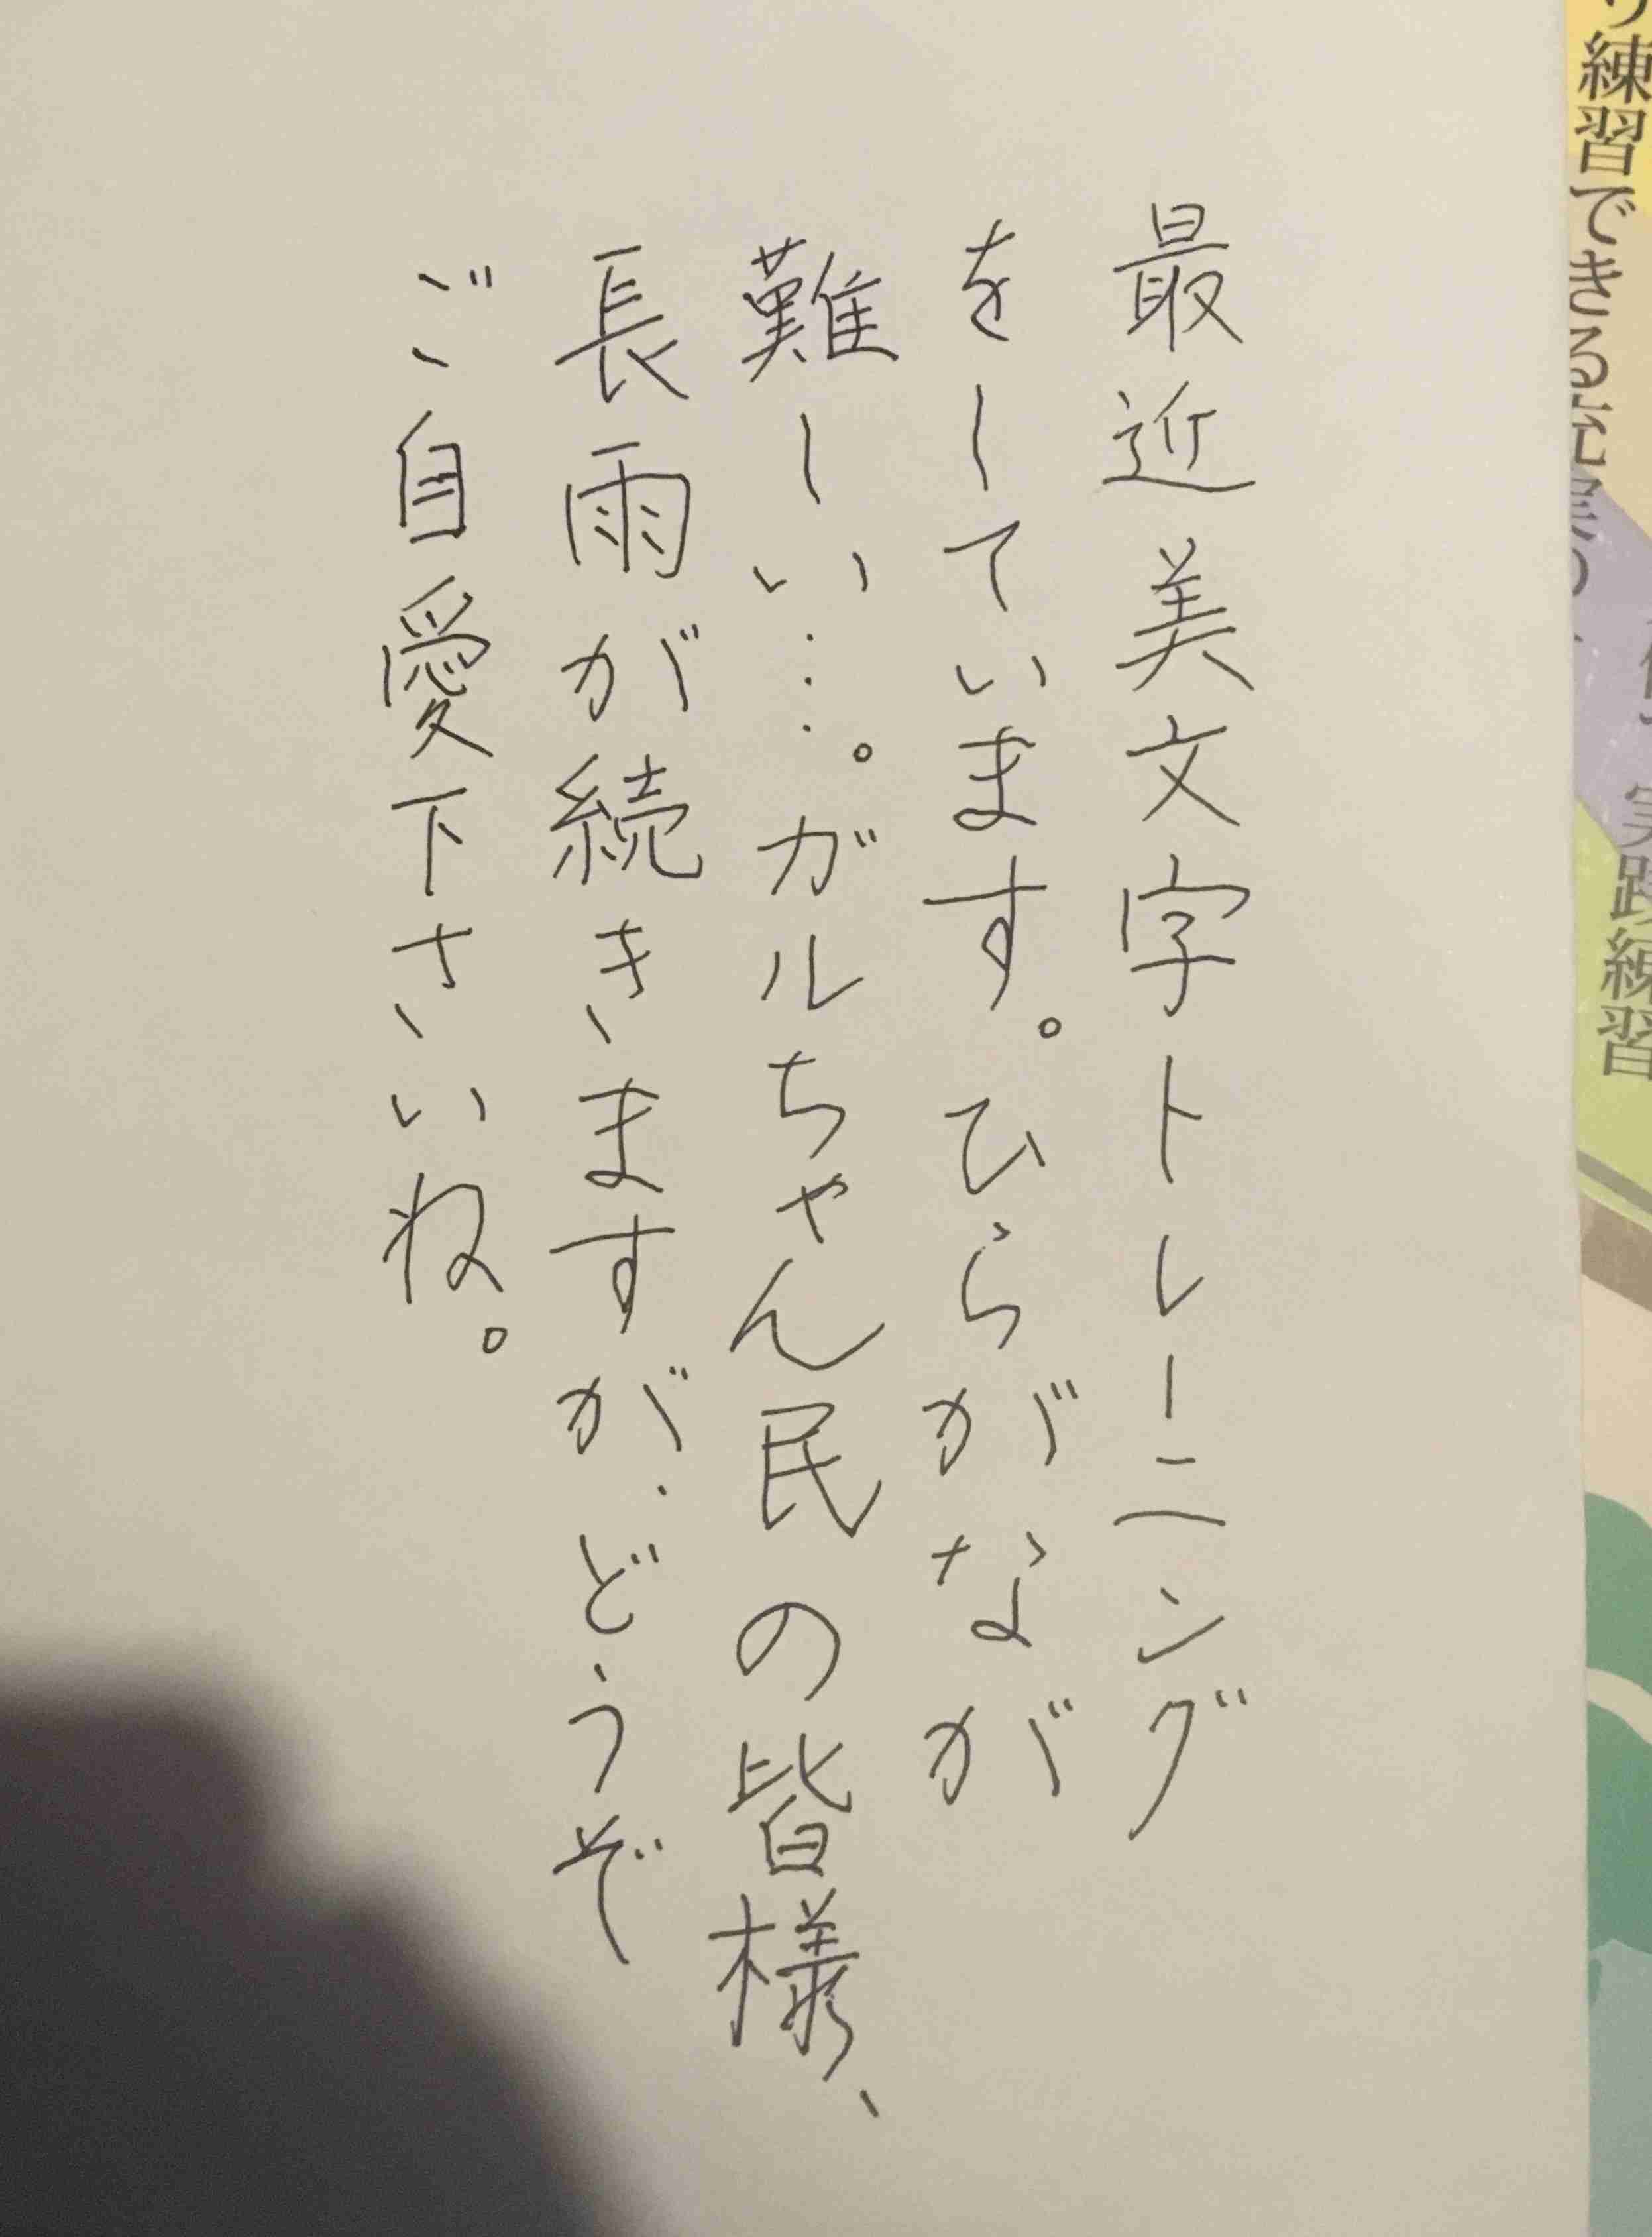 最近美文字トレーニング
をしています。ひらがなが
難しい…。ガルちゃん民の皆様、
長雨が続きますが、どうぞ
ご自愛下さいね。
練習できる
実践練習